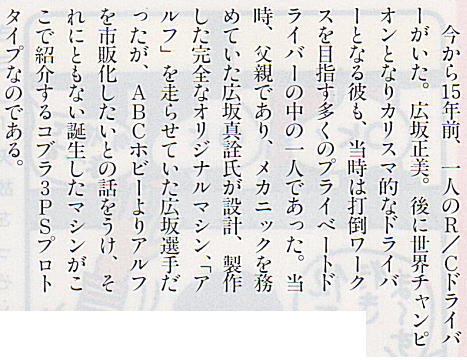 今から15年前、一人のR／Cドライバ
ーがいた。広坂正美。後に世界チャンピ
オンとなりカリスマ的なドライバ
ーとなる彼も、当時は打倒ワーク
スを目指す多くのプライベートド
ライバーの中の一人であった。当
時、父親であり、メカニックを務
めていた広坂真詮氏が設計、製作
した完全なオリジナルマシン、「ア
ルフ」を走らせていた広坂選手だ
ったが、ABCホビーよりアルフ
を市販化したいとの話をうけ、そ
れにともない誕生したマシンがこ
こで紹介するコブラ3PSプロト
タイプなのである。